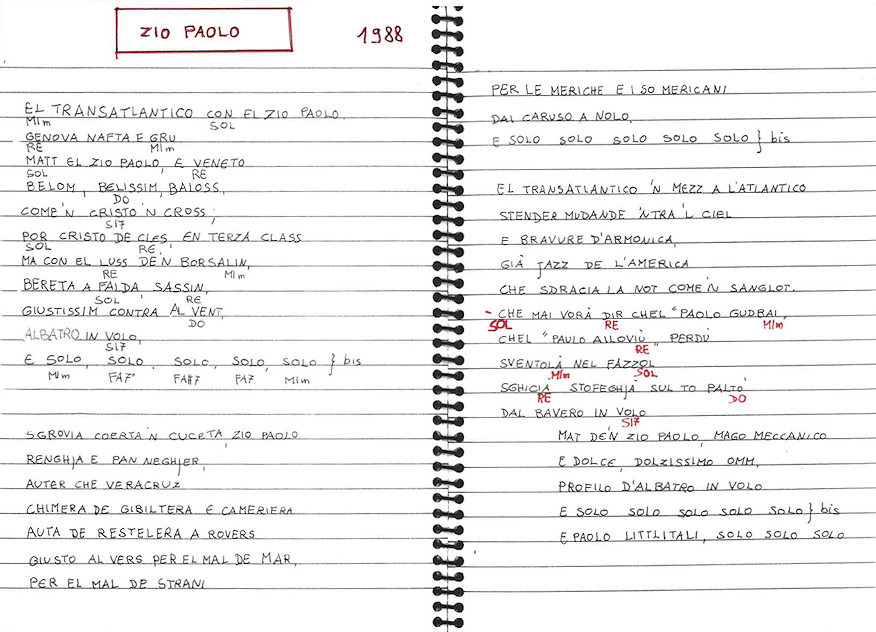 ZIO PAOLO
1988
EL TRANSATLANTICO CON EL ZIO PAOLO.
MIm SOL
GENOVA NAFTA E GRU
RE MIm
MATT EL ZIO PAOLO, E VENETO
SOL RE
BELOM, BELISSIM, BALOSS,
DO
COME'N CRISTO 'N CROSS;
SI7
POR CRISTO DE CLES EN TERZA CLASS
SOL RE
MA CON EL LUSS DE'N BORSALIN,
RE MIm
BERETA A FALDA SASSIN,
SOL RE
GIUSTISSIM CONTRA AL VENT,
DO
ALBATRO IN VOLO,
SI7
E SOLO, SOLO, SOLO, SOLO, SOLO } bis
MIm FA7 FA#7 FA7 MIm
SGROVIA COERTA 'N CUCETA, ZIO PAOLO
RENGHJA E PAN NEGHJER,
AUTER CHE VERACRUZ
CHIMERA DE GIBILTERA E CAMERIERA
AUTA DE RESTELERA A ROVERS
GIUSTO AL VERS PER EL MAL DE MAR,
PER EL MAL DE STRANI
PER LE MERICHE E I SO MERICANI
DAI CARUSO A NOLO,
E SOLO SOLO SOLO SOLO SOLO } bis
EL TRANSATLANTICO 'N MEZZ A L'ATLANTICO
STENDER MUDANDE 'NTRA 'L CIEL
E BRAVURE D'ARMONICA,
GIÀ JAZZ DE L'AMERICA
CHE SDRACIA LA NOT COME'N SANGLOT.
- CHE MAI VORÀ DIR CHEL "PAOLO GUDBAI,
SOL RE MIm
CHEL "PAULO AILOVIÙ" PERDÙ
RE
SVENTOLÀ NEL FAZZOL
MIm SOL
SGHICIÀ STOFEGHJÀ SUL TO PALTÒ
RE DO
DAL BAVERO IN VOLO
SI7
MAT DE'N ZIO PAOLO, MAGO MECCANICO
E DOLCE, DOLZISSIMO OMM,
PROFILO D'ALBATRO IN VOLO
E SOLO SOLO SOLO SOLO SOLO } bis
E PAOLO LITTLITALI, SOLO SOLO SOLO